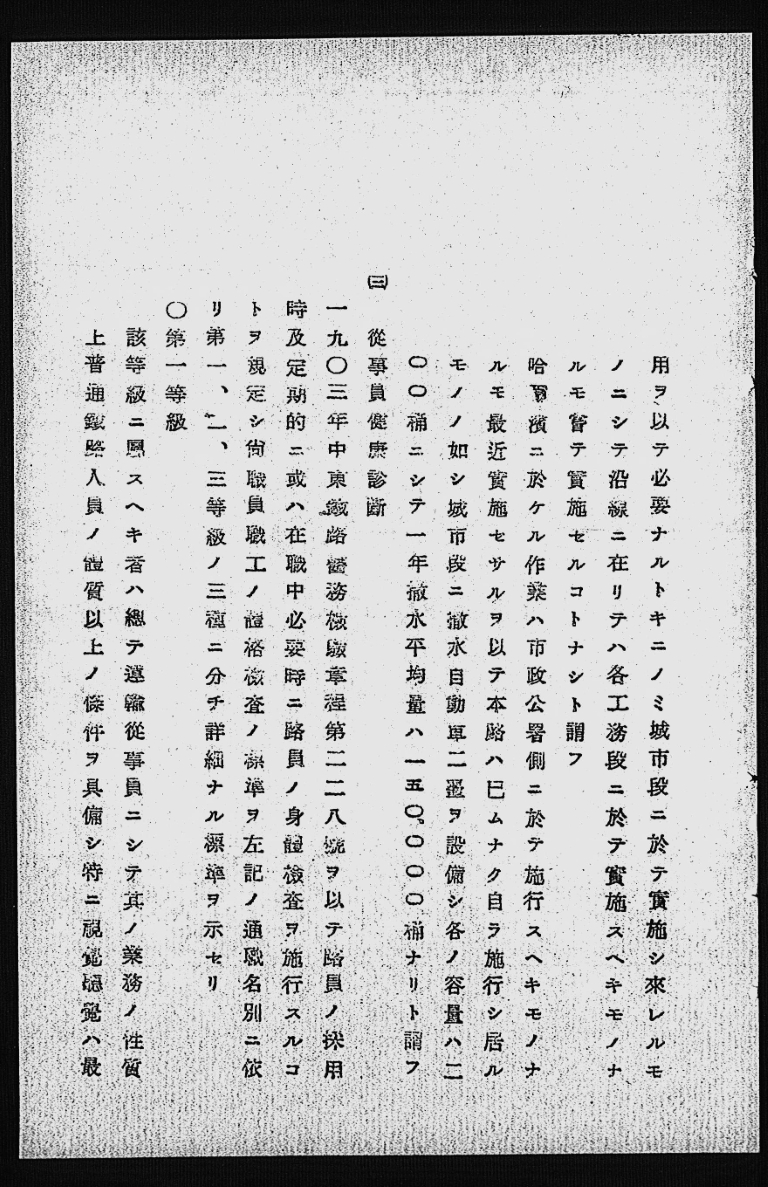 用ヲ以テ必要ナルトキニノミ城市段ニ於テ實施シ來レルモ
ノニシテ沿線ニ在リテハ各工務段ニ於テ實施スヘキモノナ
ルモ嘗テ實施セルコトナシト謂フ
哈爾濱ニ於ケル作業ハ市政公署側ニ於テ施行スヘキモノナ
ルモ最近實施セサルヲ以テ本路ハ已ムナク自ラ施行シ居ル
モノノ如シ城市段ニ撒水自動車二臺ヲ設備シ各ノ容量ハ二
〇〇桶ニシテ一年撒水平均量ハ一五〇、〇〇〇桶ナリト謂フ
㈢ 從事員健康診斷
一九〇三年中東鐵路醫務檢驗章程第二二八號ヲ以テ路員ノ採用
時及定期的ニ或ハ在職中必要時ニ路員ノ身體檢査ヲ施行スルコ
トヲ規定シ尙職員職工ノ體格檢査ノ標準ヲ左記ノ通職名別ニ依
リ第一、二、三等級ノ三種ニ分チ詳細ナル標準ヲ示セリ
〇第一等級
該等級ニ屬スヘキ者ハ總テ運輸從事員ニシテ其ノ業務ノ性質
上普通鐵路人員ノ體質以上ノ條件ヲ具備シ特ニ視覺聽覺ハ最